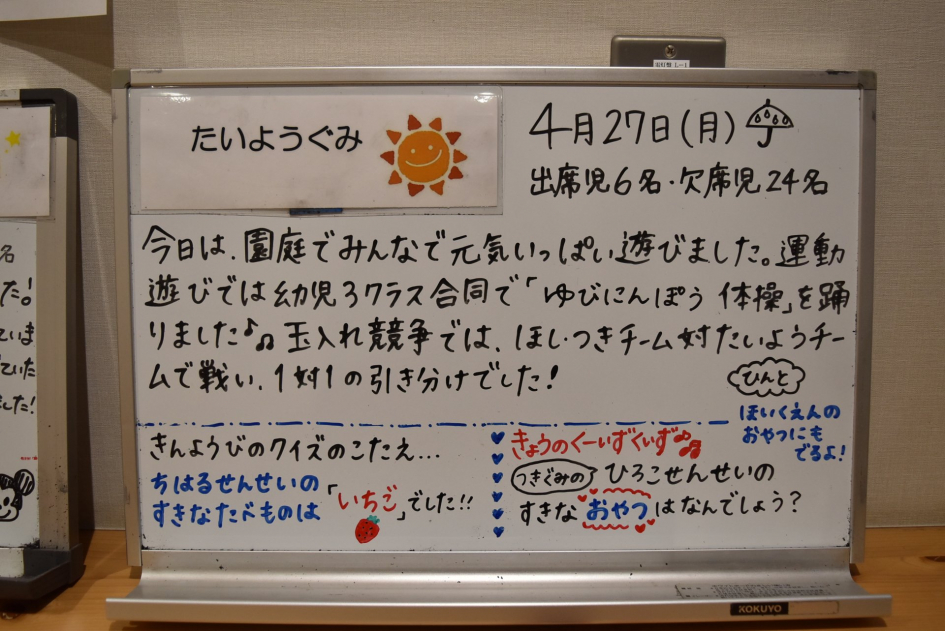 たいようぐみ
4月27日(月)
出席児6名・欠席児24名
今日は、園庭でみんなで元気いっぱい遊びました。運動
遊びでは幼児3クラス合同で「ゆびにんぽう体操」を踊
りました♪♫玉入れ競争では、ほし・つきチーム対たいようチー
ムで戦い、1対1の引き分けでした!
きんようびのクイズのこたえ...
ちはるせんせいの
すきなたべものは
「いちご」でした!!
ひんと
ほいくえんの
おやつにも
でるよ!
きょうのくーいずくいず♫♫
つきぐみの ひろこせんせいの
すきなおやつはなんでしょう?
KOKUYO
名
た!
ていま
ていた
ました!